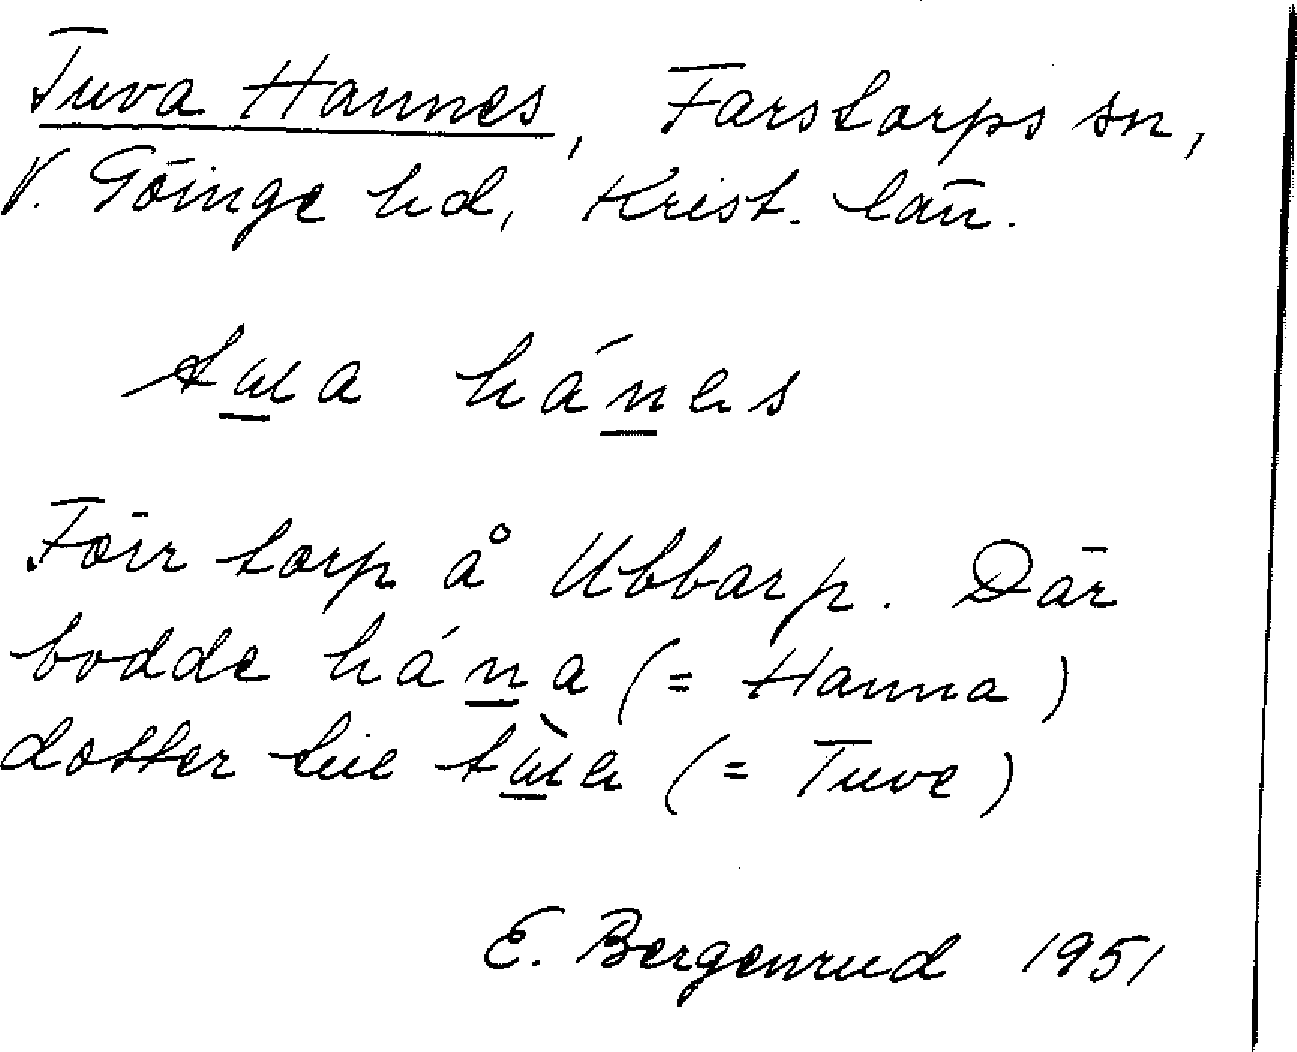 Tuva Hannes, Farstorps sn,
V. Göinge hd, Krist. län.
tɯa hánəs
Förr torp å Ubbarp. Där
bodde hána (= Hanna)
dotter till tɯ̀ə (= Tuve)
E. Bergenrud 1951